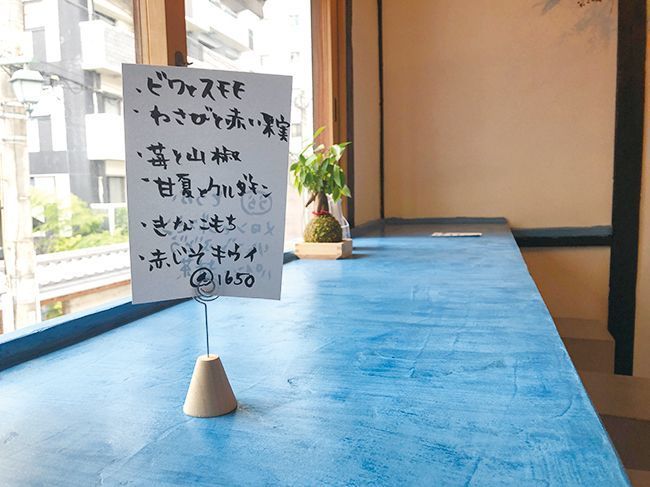 ・ビワとスモモ
・わさびと赤い果実
・苺と山椒
・甘夏とカルダモン
・きなこもち
・赤じそキウイ
@1650